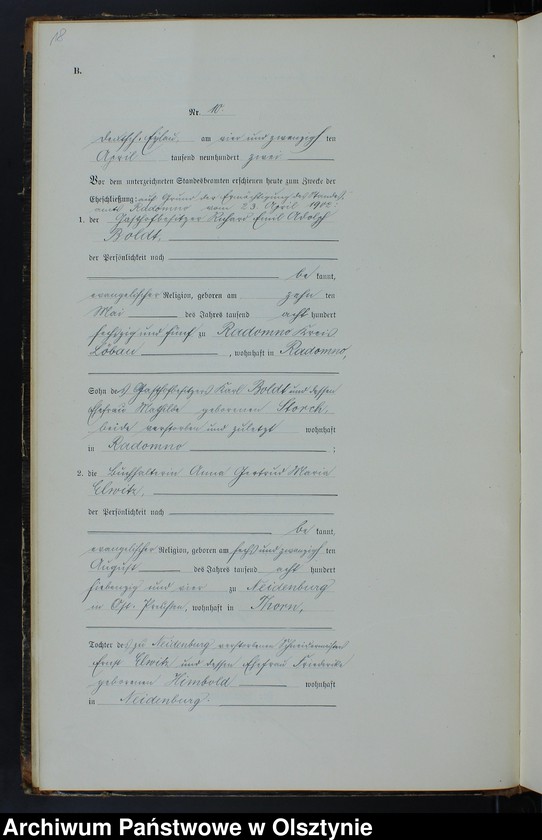 18
B.
Nr. 10.
Deutsch Eylau, am vier und zwanzigsten
April tausend neunhundert zwei
Vor dem unterzeichneten Standesbeamten erschienen heute zum Zwecke der
Eheschließung: auf Grund der Ermächtigung des Standes-
amts Radomno vom 23. April 1902.
1. der Gasthofbesitzer Richard Emil Adolph
Boldt,
der Persönlichkeit nach
be kannt,
evangelischer Religion, geboren am zehn ten
Mai des Jahres tausend acht hundert
sechszig und fünf zu Radomno Kreis
Löbau, wohnhaft in Radomno,
Sohn des Gasthofbesitzers Karl Boldt und dessen
Ehefrau Mathilde geborenen Storch,
beide verstorben und zuletzt wohnhaft
in Radomno ;
2. die Buchhalterin Anna Gertrud Maria
Elwitz,
der Persönlichkeit nach
be kannt,
evangelischer Religion, geboren am sechs und zwanzigsten
August des Jahres tausend acht hundert
siebenzig und vier zu Neidenburg
in Ost-Preußen, wohnhaft in Thorn,
Tochter des zu Neidenburg verstorbenen Schneidermeisters
Ernst Elwitz und dessen Ehefrau Friederike
geborenen Himbold wohnhaft
in Neidenburg.
Archiwum Państwowe w Olsztynie